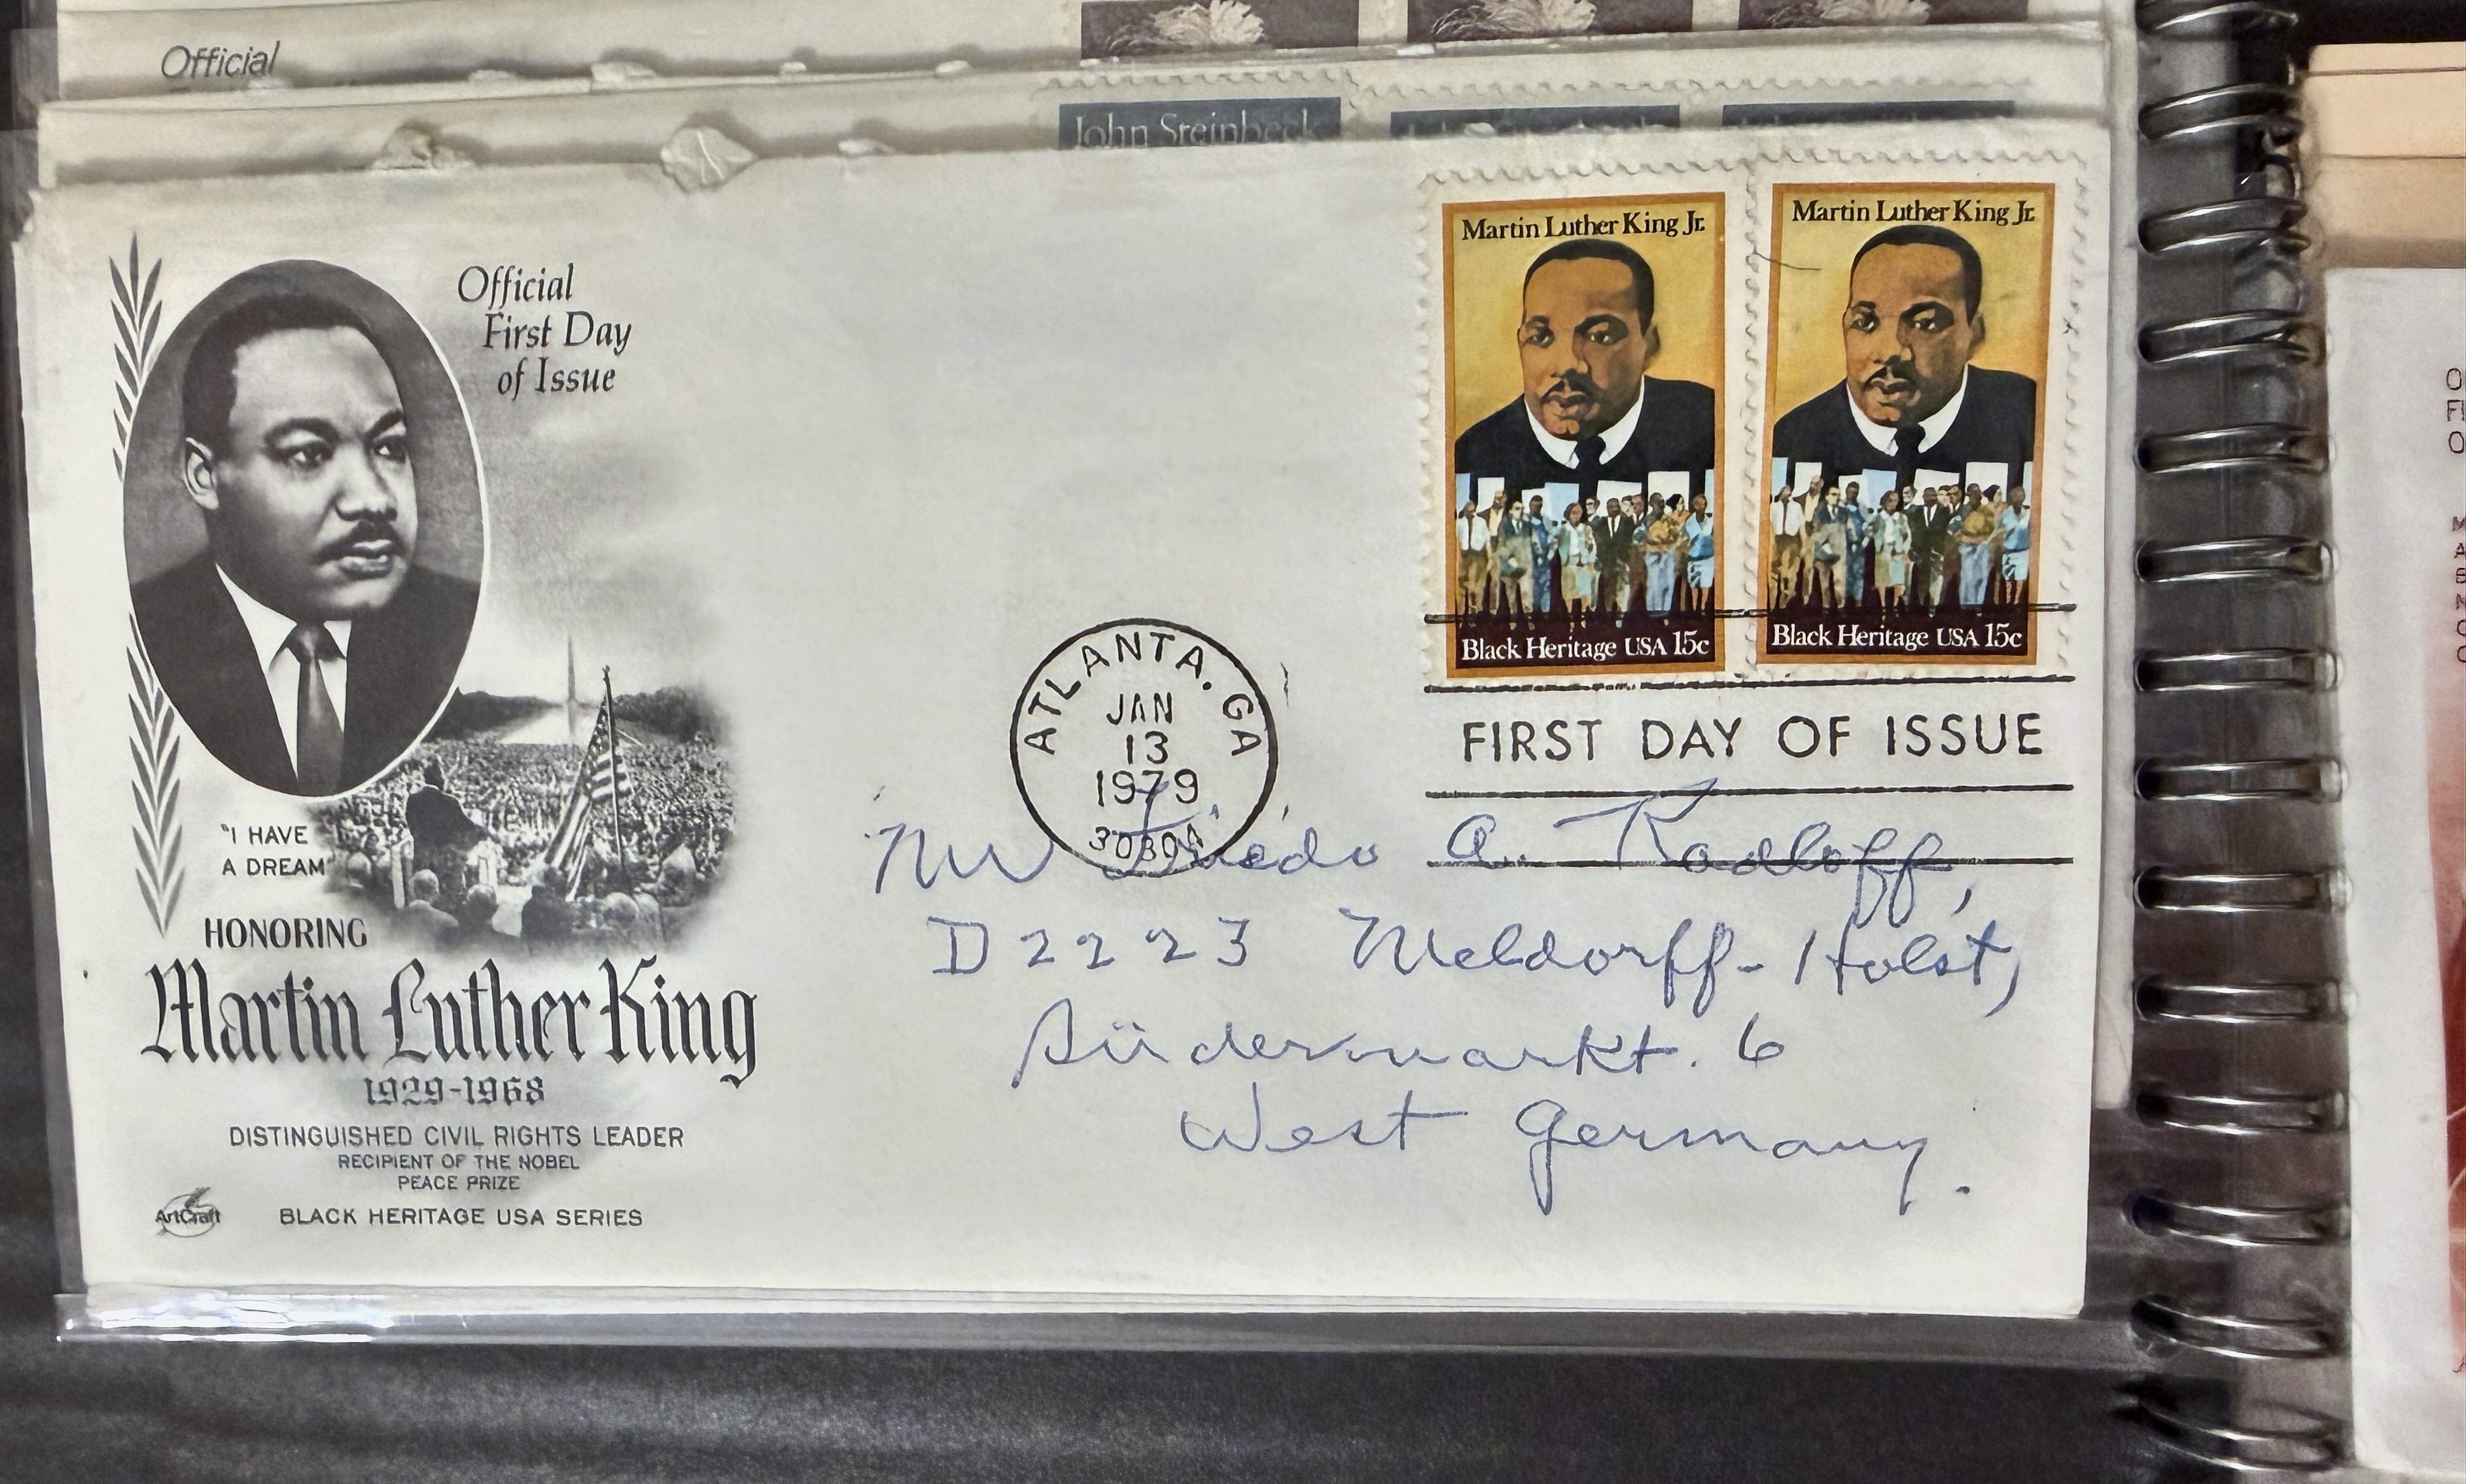 Official
John Steinbeck
Official
First Day
of Issue
Martin Luther King Jr.
Black Heritage USA 15c
Martin Luther King Jr.
Black Heritage USA 15c
ATLANTA. GA
JAN
13
1979
FIRST DAY OF ISSUE
"I HAVE
A DREAM
HONORING
Martin Luther King
1929-1968
DISTINGUISHED CIVIL RIGHTS LEADER
RECIPIENT OF THE NOBEL
PEACE PRIZE
ArtCraft
BLACK HERITAGE USA SERIES
a. Radloff,
D 2223 Meldorff-Holst,
Südermarkt. 6
West Germany.